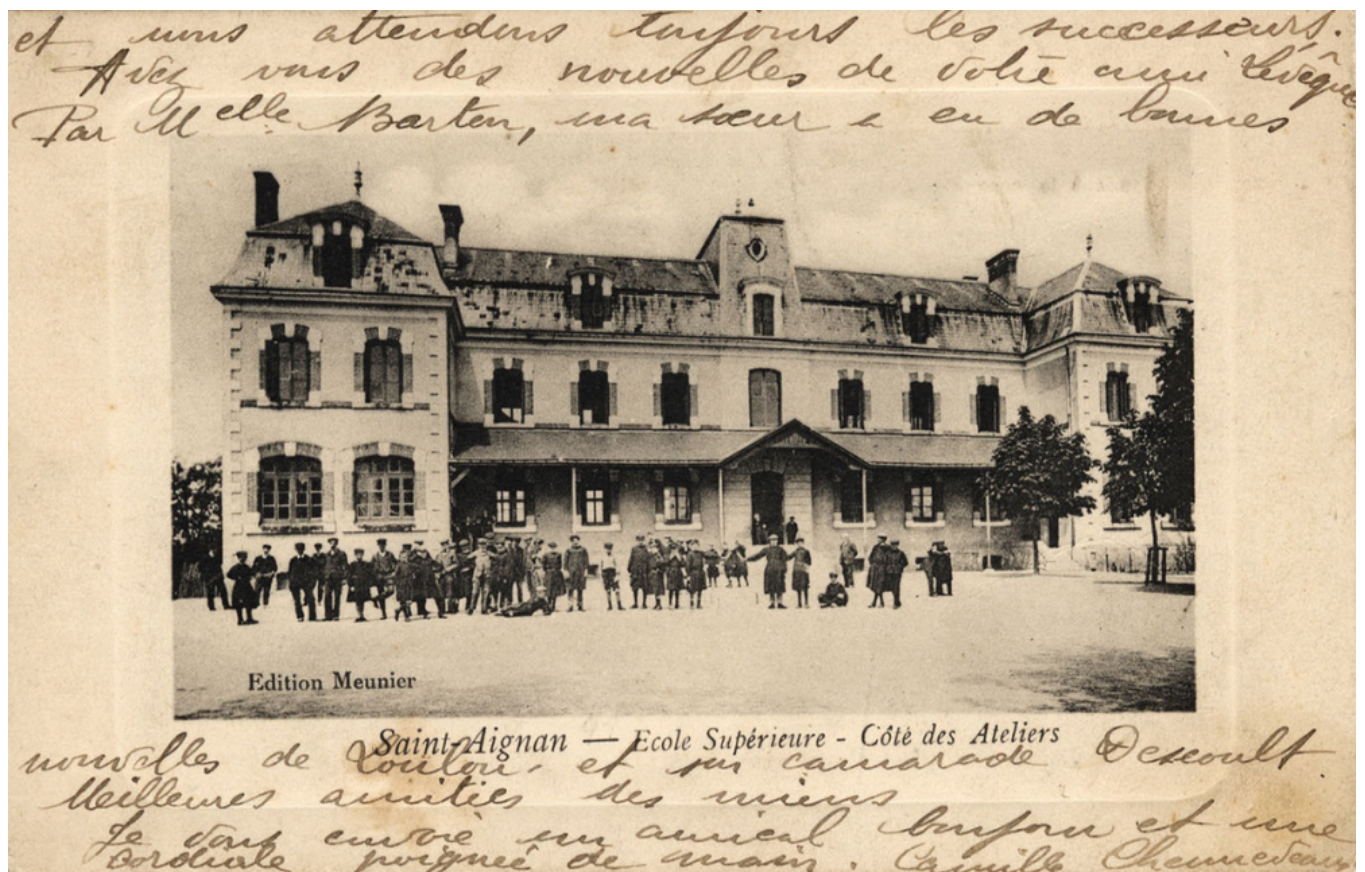 et nous attendons toujours les successeurs.
Avez vous des nouvelles de votre ami Levêque
Par Melle Barten, ma sœur a eu de bonnes
Edition Meunier
Saint-Aignan — Ecole Supérieure - Côté des Ateliers
nouvelles de Loulou, et son camarade
Meilleures amitiés des miens
Je vous envoie un amical bonjour et une
cordiale poignée de main. Camille